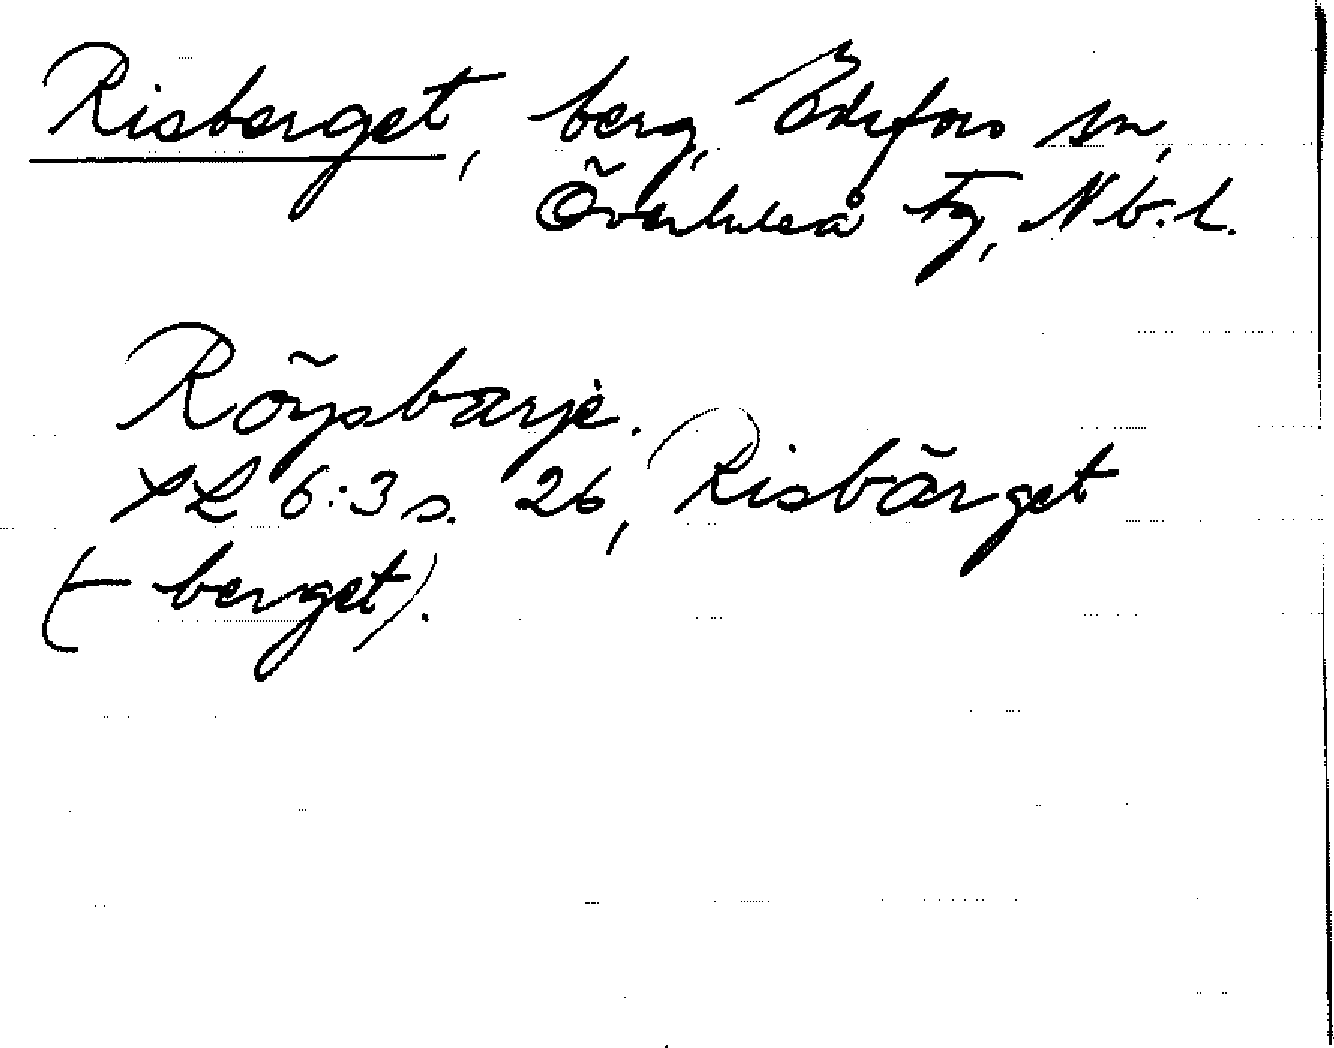 Risberget, berg, Edefors sn,
Överluleå tg, Nb. l.
Röysbarjè.
SL 6:3 s. 26, Risbärget
(- berget).